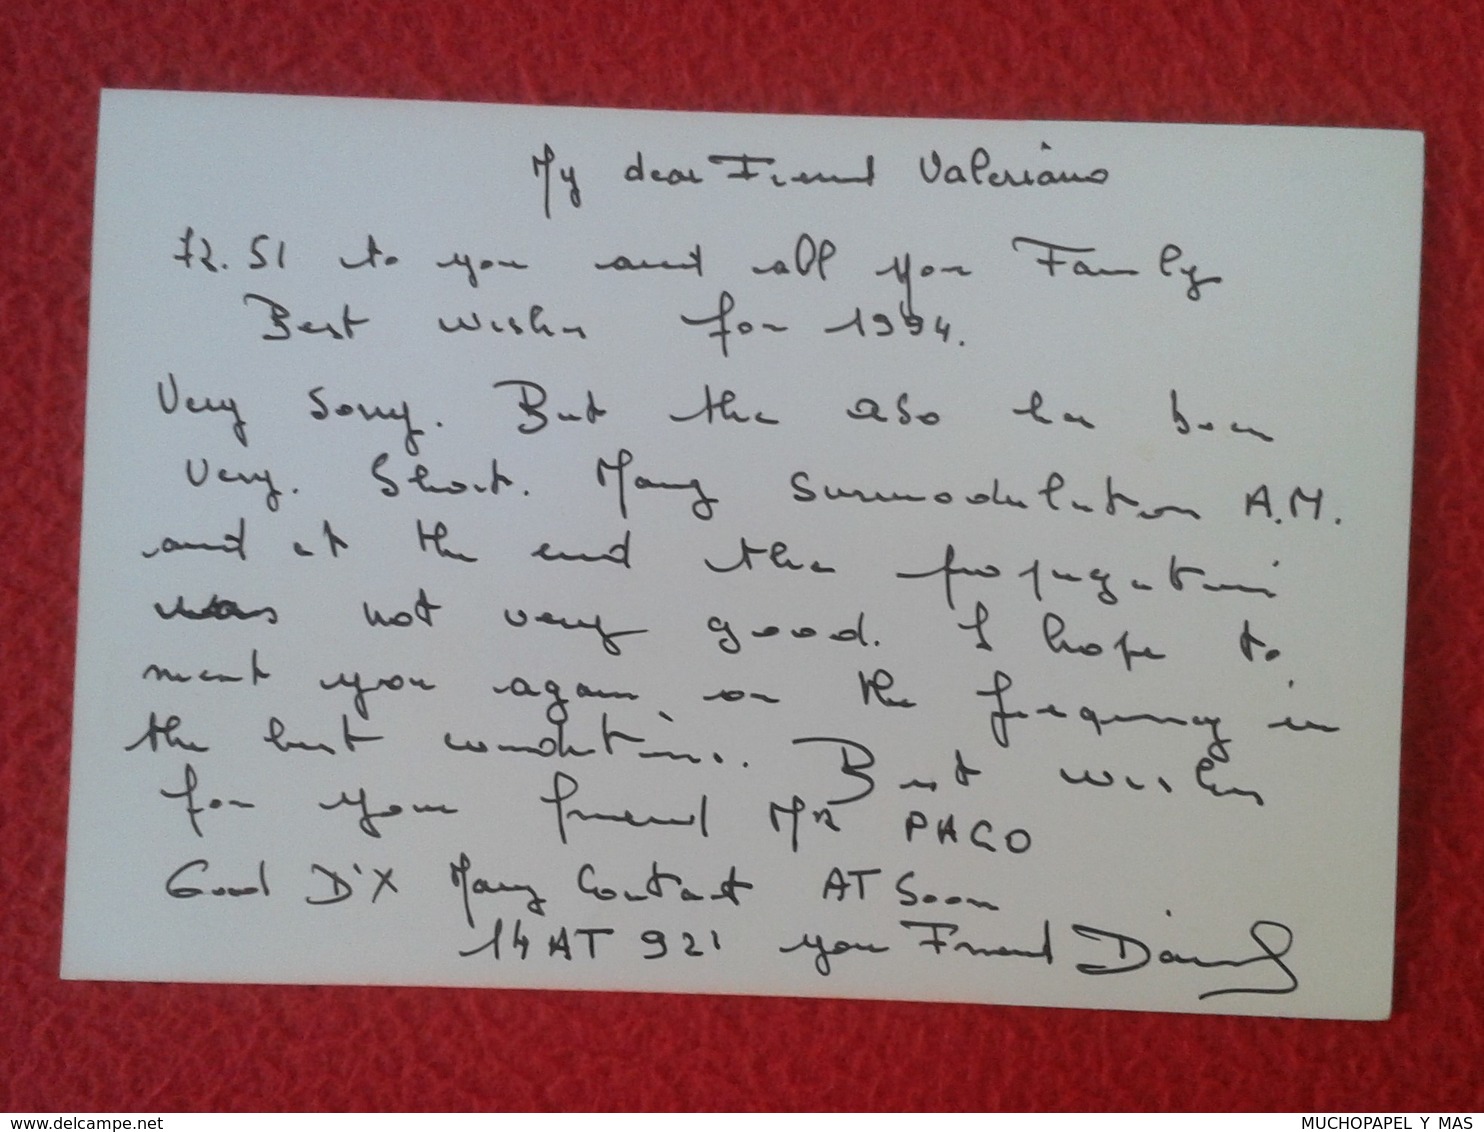 My dear Friend Valeriano
73.51 to you and all your Family
Best wishes for 1994.
Very Sorry. But the aso has been
very. Short. Many Surmodulation A.M.
and at the end the propagation
was not very good. I hope to
meet you again on the frequency in
the best conditions. Best wishes
for your friend Mr PACO
Good D'X Many Contact AT Soon
14 AT 921 your Friend Daniel
delcampe.net
MUCHOPAPEL Y MAS